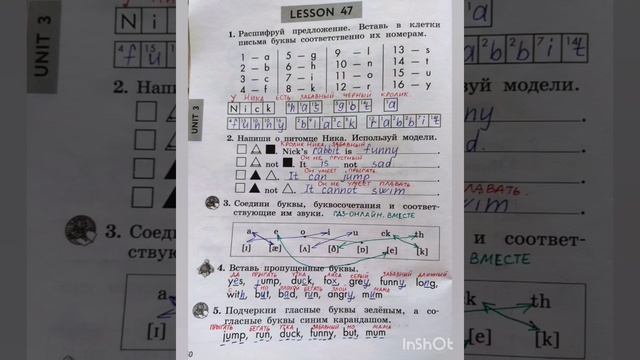 LESSON 47
1. Расшифруй предложение. Вставь в клетки
письма буквы соответственно их номерам.
1 – a 5 – g 9 – l 13 – s
2 – b 6 – h 10 – n 14 – t
3 – c 7 – i 11 – o 15 – u
4 – f 8 – k 12 – r 16 – y
У НИКА ЕСТЬ ЗАБАВНЫЙ ЧЕРНЫЙ КРОЛИК.
Nick has got a
funny black rabbit
UNIT 3
2. Напиши о питомце Ника. Используй модели.
КРОЛИК НИКА ЗАБАВНЫЙ
Nick's rabbit is funny
ОН НЕ ГРУСТНЫЙ
not . It is not sad
ОН УМЕЕТ ПРЫГАТЬ
. It can jump
ОН НЕ УМЕЕТ ПЛАВАТЬ
not . It cannot swim
3. Соедини буквы, буквосочетания и соответ-
ствующие им звуки. ГДЗ-ОНЛАЙН. ВМЕСТЕ
a e o i u ck th
[ɪ] [æ] [ʌ] [ð] [ɒ] [e] [k]
4. Вставь пропущенные буквы.
ДА ПРЫГАТЬ УТКА ЛИСА СЕРЫЙ ЗАБАВНЫЙ ДЛИННЫЙ
yes, jump, duck, fox, grey, funny, long,
with, but, bad, run, angry, mum
5. Подчеркни гласные буквы зелёным, а со-
гласные буквы синим карандашом.
ПРЫГАТЬ БЕГАТЬ УТКА ЗАБАВНЫЙ НО МАМА
jump, run, duck, funny, but, mum
InShOt